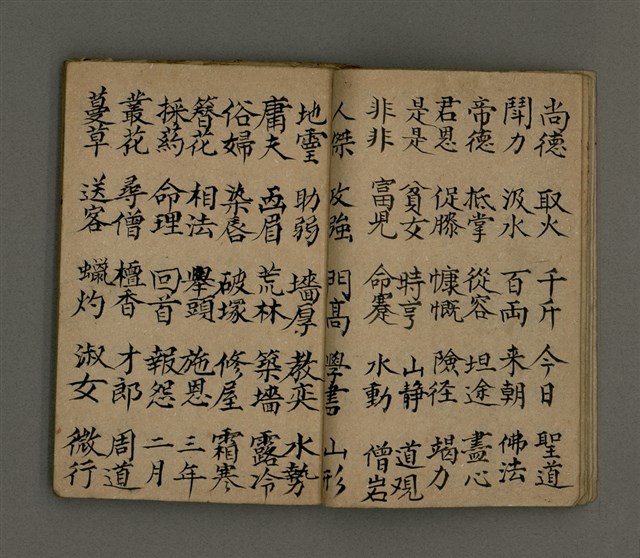 尚德 取火 千斤 今日 聖道
鬪力 汲水 百両 来朝 佛法
帝德 抵掌 從容 坦途 盡心
君恩 促膝 慷慨 險径 竭力
是是 貧女 時亨 山静 道观
非非 富児 命蹇 水動 僧岩
人傑 攻強 門髙 學書 山形
地霊 助弱 墻厚 教奕 水勢
庸夫 画眉 荒林 築墻 露冷
俗婦 染唇 破塚 修屋 霜寒
簪花 相法 舉頭 施恩 三年
採药 命理 回首 報怨 二月
叢花 尋僧 檀香 才郎 周道
蔓草 送客 蠟灼 淑女 微行